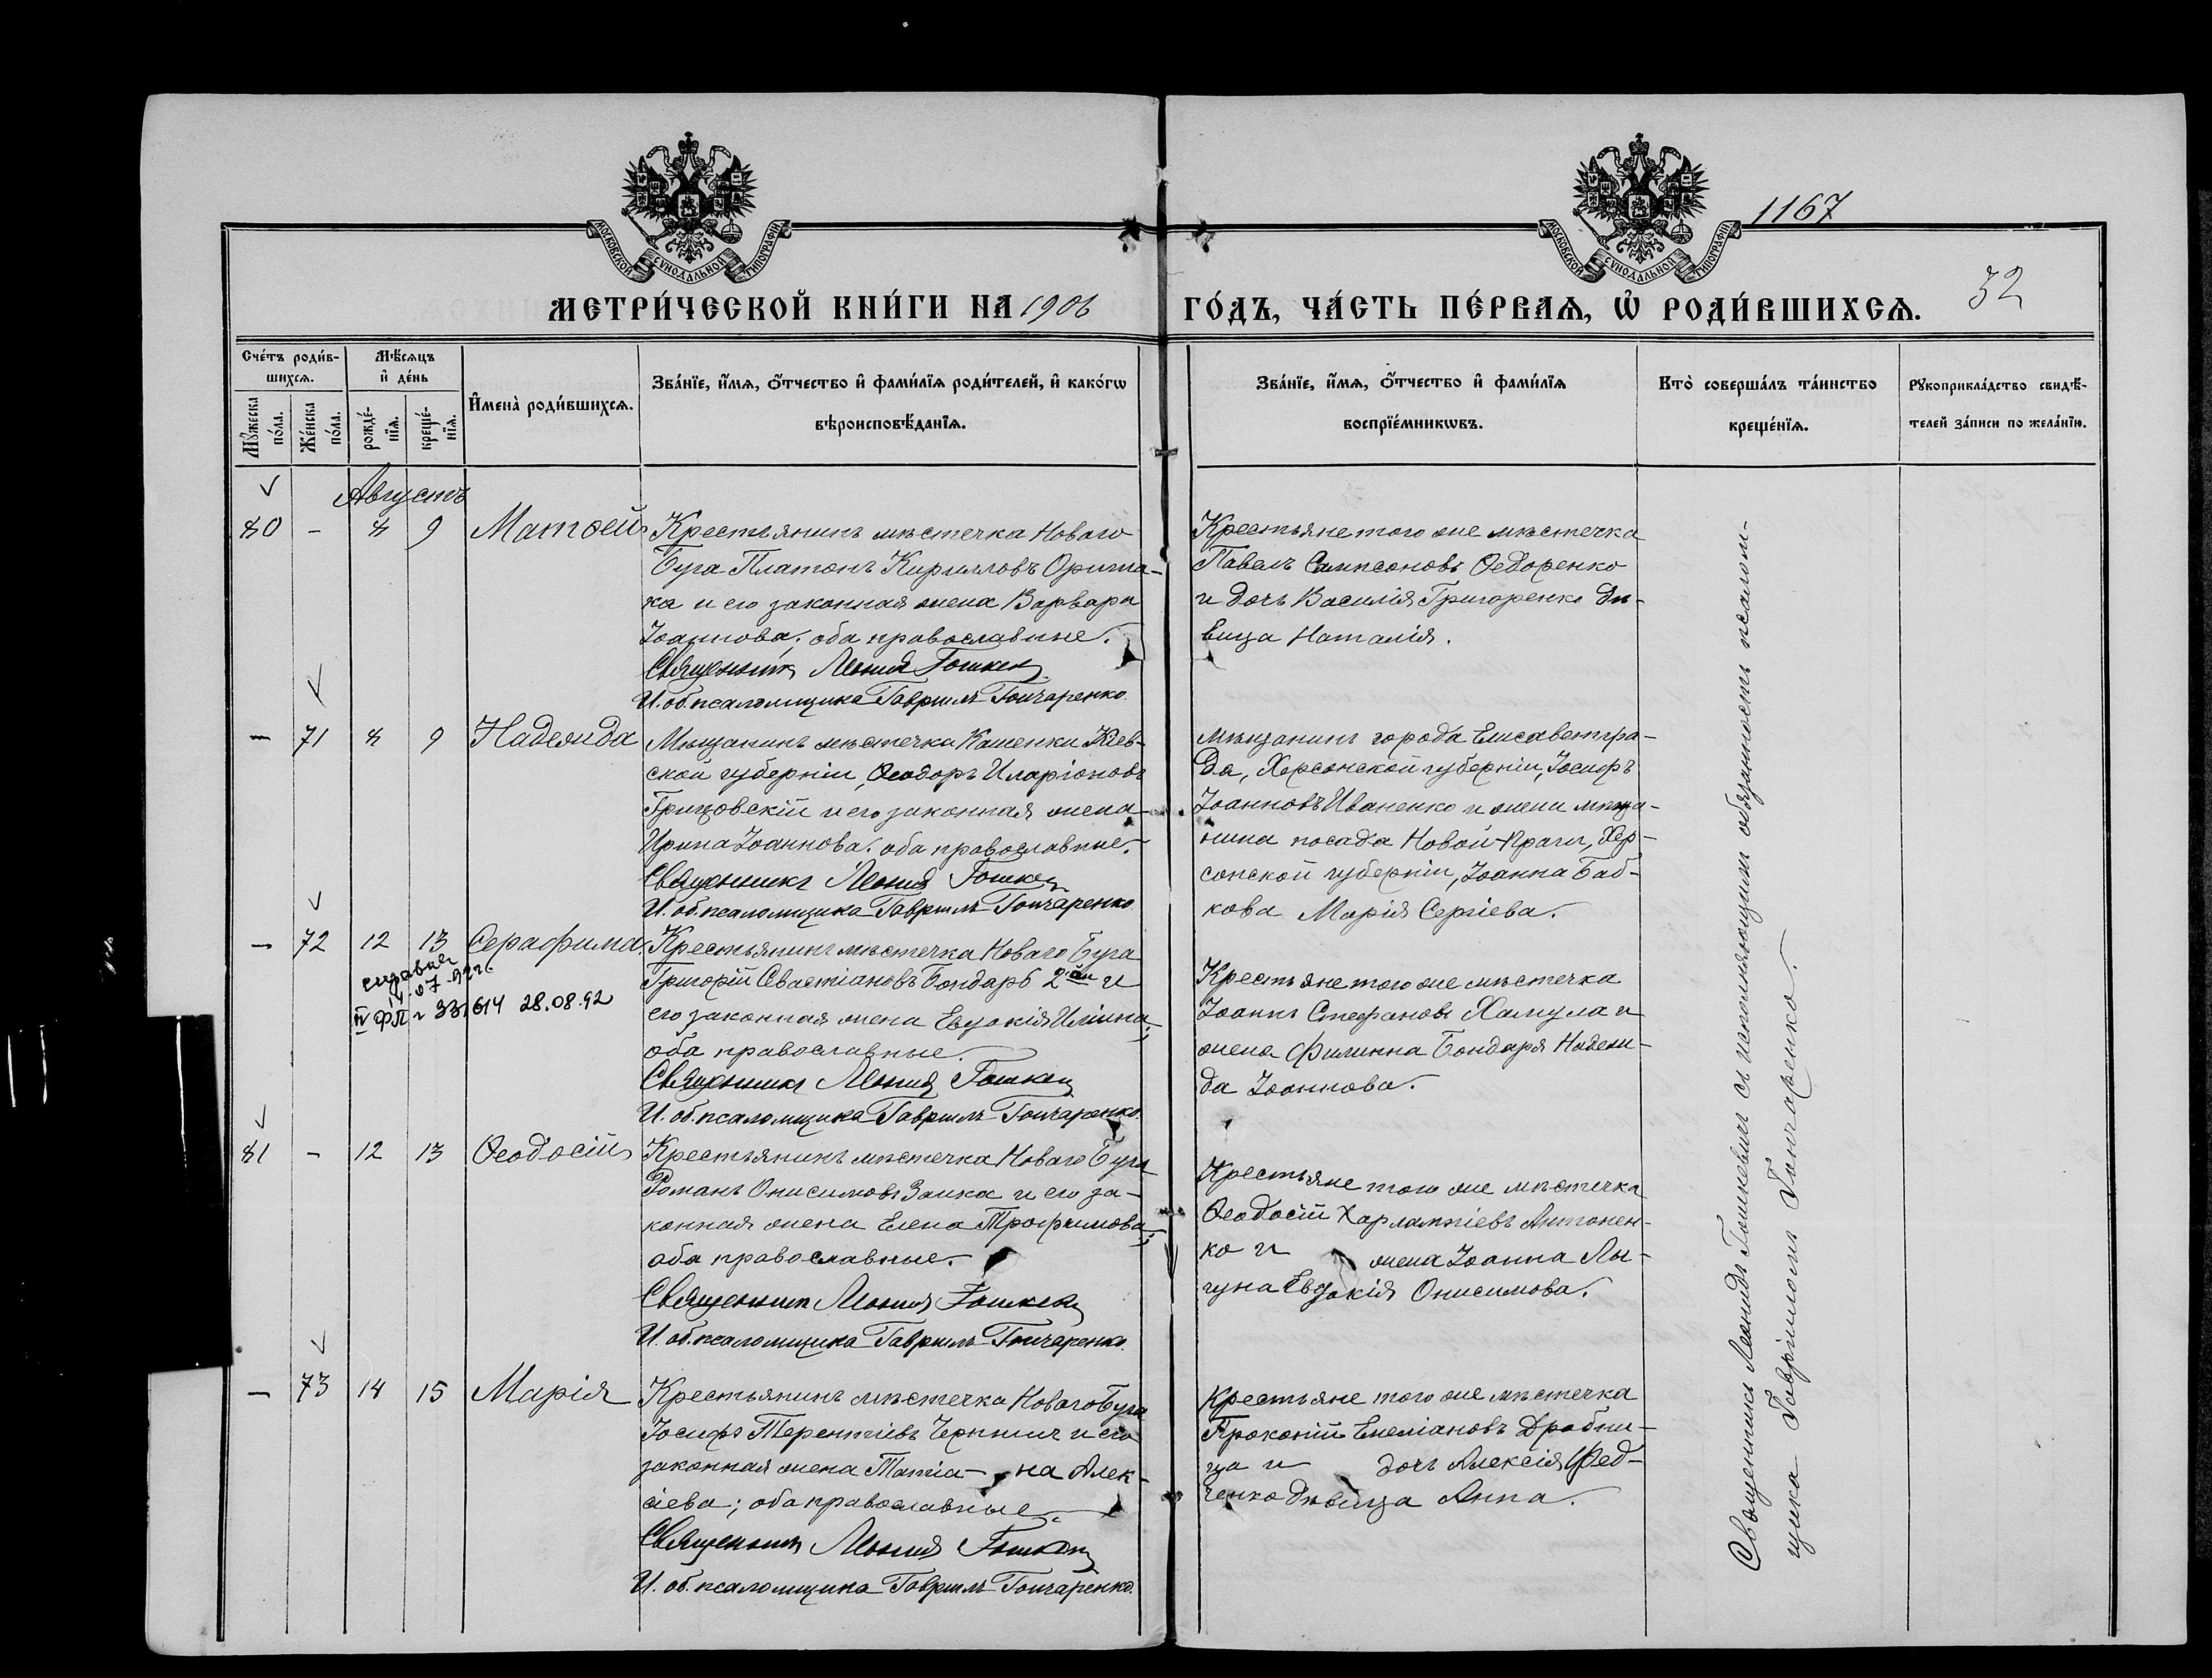 МОСКОВСКОЙ СѴНОДАЛЬНОЙ ТИПОГРАФІИ
МОСКОВСКОЙ СѴНОДАЛЬНОЙ ТИПОГРАФІИ
1167
32
МЕТРИ́ЧЕСКОЙ КНИ́ГИ НА 1906
ГО́ДЪ, ЧА́СТЬ ПЕ́РВАѦ, Ѽ РОДИ́ВШИХСѦ.
Сче́тъ роди́в-
шихсѧ.
Мꙋ́жеска по́ла.
Же́нска по́ла.
Мѣ́сѧцъ и҆ де́нь
рожде́-нїѧ.
креще́-нїѧ.
И҆мена̀ роди́вшихсѧ.
Зва́нїе, и҆́мѧ, ѻ҆́тчество и҆ фами́лїѧ роди́телей, и҆ како́гѡ
вѣроисповѣ́данїѧ.
Зва́нїе, и҆́мѧ, ѻ҆́тчество и҆ фами́лїѧ
воспрїе́мникѡвъ.
Кто̀ соверша́лъ та́инство
креще́нїѧ.
Рꙋкоприкла́дство свидѣ́-
телей за́писи по жела́нїю.
Августъ
80 - 8 9 Матѳей
Крестьянинъ мѣстечка Новаго
Буга Платонъ Кирилловъ Ориша-
ка и его законная жена Варвара
Іоаннова; оба православные.
Священникъ Леонидъ Гошкев
И. об. псаломщика Гавриилъ Гончаренко.
Крестьяне того же мѣстечка
Павелъ Сампсоновъ Ѳедоренко
и дочь Василія Григоренко дѣ-
вица Наталія.
- 71 8 9 Надежда
Мѣщанинъ мѣстечка Кашенки Кіев-
ской губерніи, Ѳеодоръ Иларіоновъ
Грицовскій и его законная жена
Ирина Іоаннова; оба православные.
Священникъ Леонидъ Гошкев
И. об. псаломщика Гавриилъ Гончаренко
мѣщанинъ города Елисаветгра-
да, Херсонской губерніи, Іосифъ
Іоанновъ Иваненко и жена мѣща-
нина посада Новой-Праги, Хер-
сонской губерніи, Іоанна Баб-
кова Марія Сергіева.
- 72 12 13 Серафима
справка
14.07-92г.
IV ФП № 331614 28.08.92
Крестьянинъ мѣстечка Новаго Буга
Григорій Севастіановъ Бондарь 2ой и
его законная жена Евдокія Иліина;
оба православные.
Священникъ Леонидъ Гошкев
И. об. псаломщика Гавриилъ Гончаренко.
Крестьяне того же мѣстечка
Іоаннъ Стефановъ Хамула и
жена Филиппа Бондаря Надеж-
да Іоаннова.
81 - 12 13 Ѳеодосій
Крестьянинъ мѣстечка Новаго Буга
Романъ Онисимовъ Заика и его за-
конная жена Елена Трофимова;
оба православные.
Священникъ Леонидъ Гошкев
И. об. псаломщика Гавриилъ Гончаренко.
Крестьяне того же мѣстечка
Ѳеодосій Харлампіевъ Антонен-
ко и жена Іоанна Лы-
гуна Евдокія Онисимова.
- 73 14 15 Марія
Крестьянинъ мѣстечка Новаго Буга
Іосифъ Терентіевъ Чернышъ и его
законная жена Татіа- на Алек-
сіева; оба православные.
Священникъ Леонидъ Гошкев
И. об. псаломщика Гавриилъ Гончаренко.
Крестьяне того же мѣстечка
Прокопій Емеліановъ Дробни-
ца и дочь Алексія Фед-
ченко дѣвица Анна.
Священникъ Леонидъ Гошкевичъ съ исполняющимъ обязанность псалом-
щика Гавріиломъ Гончаренко.